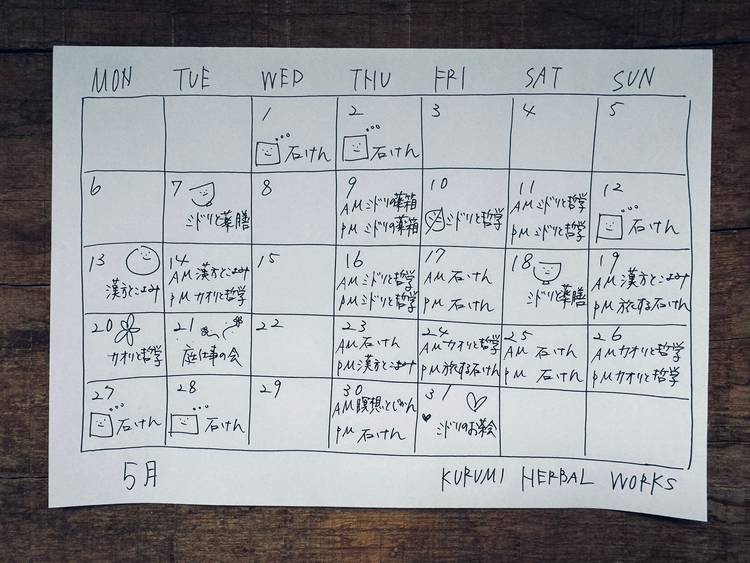 MON TUE WED THU FRI SAT SUN
1 2 3 4 5
石けん 石けん
6 7 8 9 10 11 12
AM ミドリの薬箱 AM ミドリと哲学
ミドリと薬膳 PM ミドリの薬箱 ミドリと哲学 PM ミドリと哲学 石けん
13 14 15 16 17 18 19
AM 漢方とこよみ AM ミドリと哲学 AM 石けん AM 漢方とこよみ
漢方とこよみ PM カオリと哲学 PM ミドリと哲学 PM 石けん ミドリと薬膳 PM 旅する石けん
20 21 22 23 24 25 26
AM 石けん AM カオリと哲学 AM 石けん AM カオリと哲学
カオリと哲学 庭仕事の会 PM 漢方とこよみ PM 旅する石けん PM 石けん PM カオリと哲学
27 28 29 30 31
AM 瞑想とじかん
石けん 石けん PM 石けん ミドリのお茶会
5月 KURUMI HERBAL WORKS